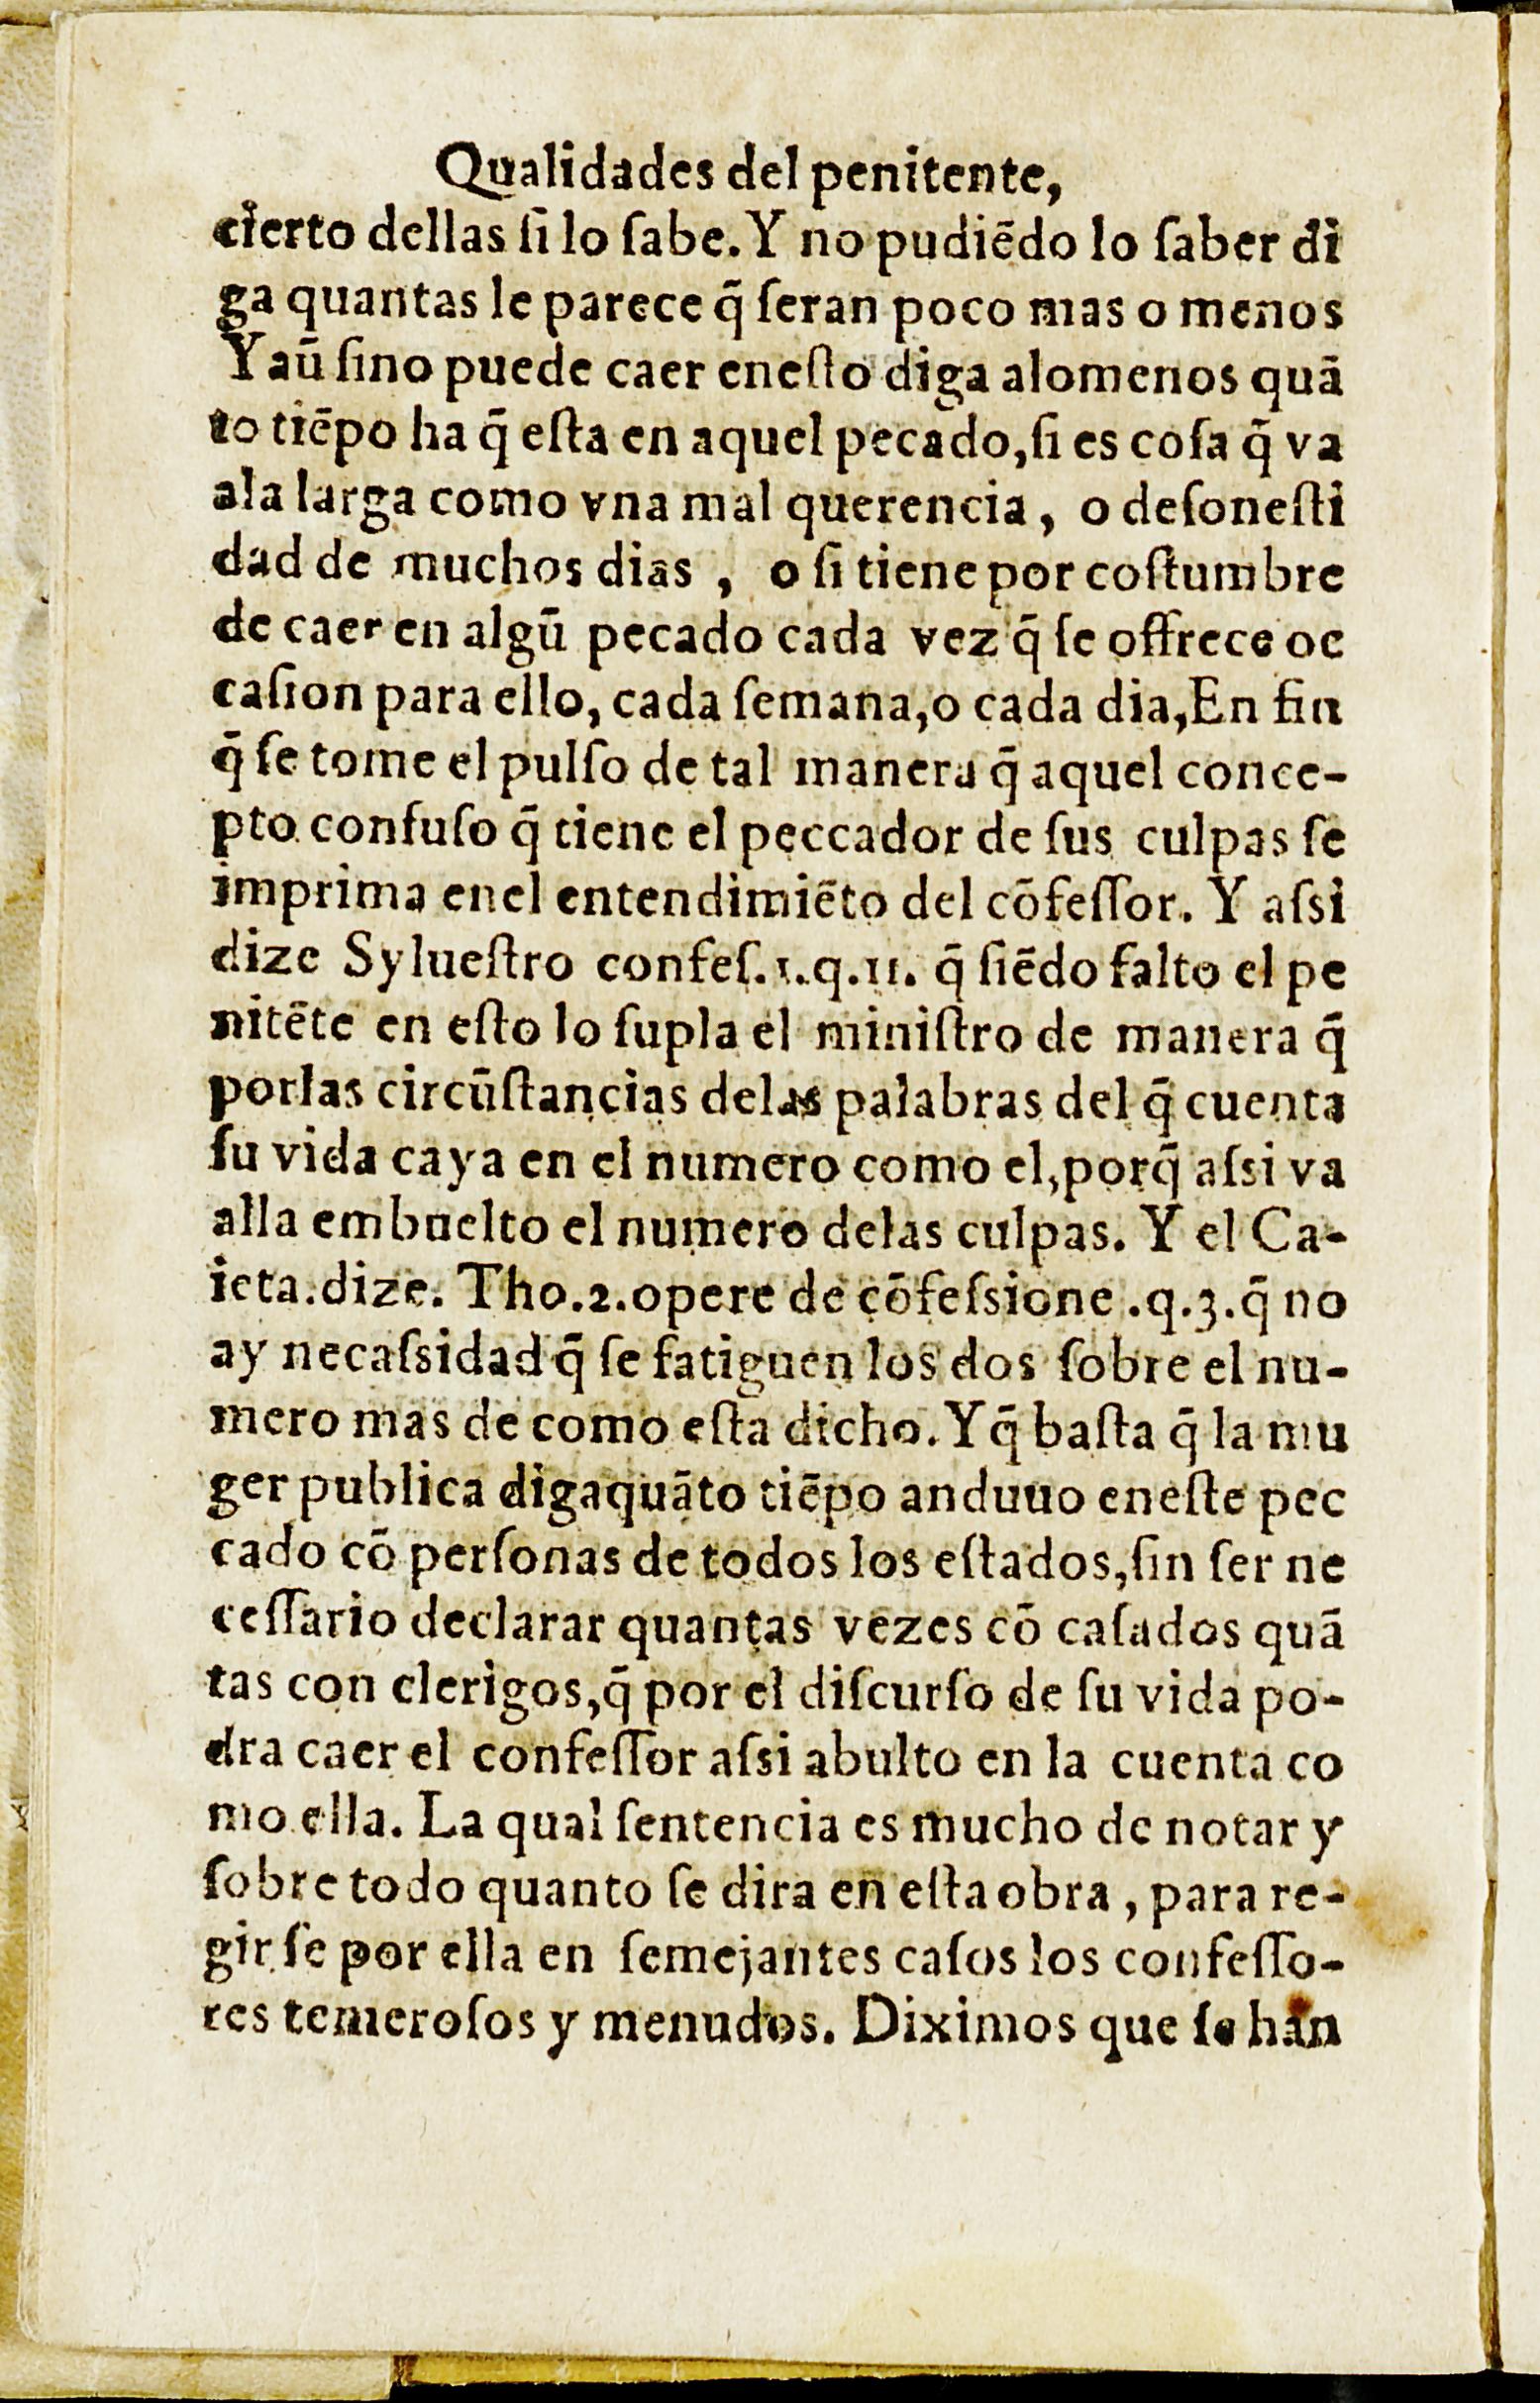 Qualidades del penitente,
cierto dellas ſi lo ſabe. Y no pudiēdo lo ſaber di
ga quantas le parece q̄ ſeran poco mas o menos
Y aū ſino puede caer eneſto diga alomenos quā
to tiēpo ha q̄ eſta en aquel pecado, ſi es coſa q̄ va
ala larga como vna mal querencia, o deſoneſti
dad de muchos dias , o ſi tiene por coſtumbre
de caer en algū pecado cada vez q̄ ſe offrece oc
caſion para ello, cada ſemana, o cada dia, En fin
q̄ ſe tome el pulſo de tal manera q̄ aquel conce-
pto confuſo q̄ tiene el peccador de ſus culpas ſe
imprima enel entendimiēto del cōfeſſor. Y aſsi
dize Sylueſtro confeſ.1.q.11. q̄ ſiēdo falto el pe
nitēte en eſto lo ſupla el miniſtro de manera q̄
porlas circūſtancias delas palabras del q̄ cuenta
ſu vida caya en el numero como el, porq̄ aſsi va
alla embuelto el numero delas culpas. Y el Ca-
ieta.dize. Tho.2.opere de cōfeſsione .q.3.q̄ no
ay necaſsidad q̄ ſe fatiguen los dos ſobre el nu-
mero mas de como eſta dicho. Y q̄ baſta q̄ la mu
ger publica digaquāto tiēpo anduuo eneſte pec
cado cō perſonas de todos los eſtados, ſin ſer ne
ceſſario declarar quantas vezes cō caſados quā
tas con clerigos, q̄ por el diſcurſo de ſu vida po-
dra caer el confeſſor aſsi abulto en la cuenta co
mo ella. La qual ſentencia es mucho de notar y
ſobre todo quanto ſe dira en eſta obra , para re-
gir ſe por ella en ſemejantes caſos los confeſſo-
res temeroſos y menudos. Diximos que ſe han